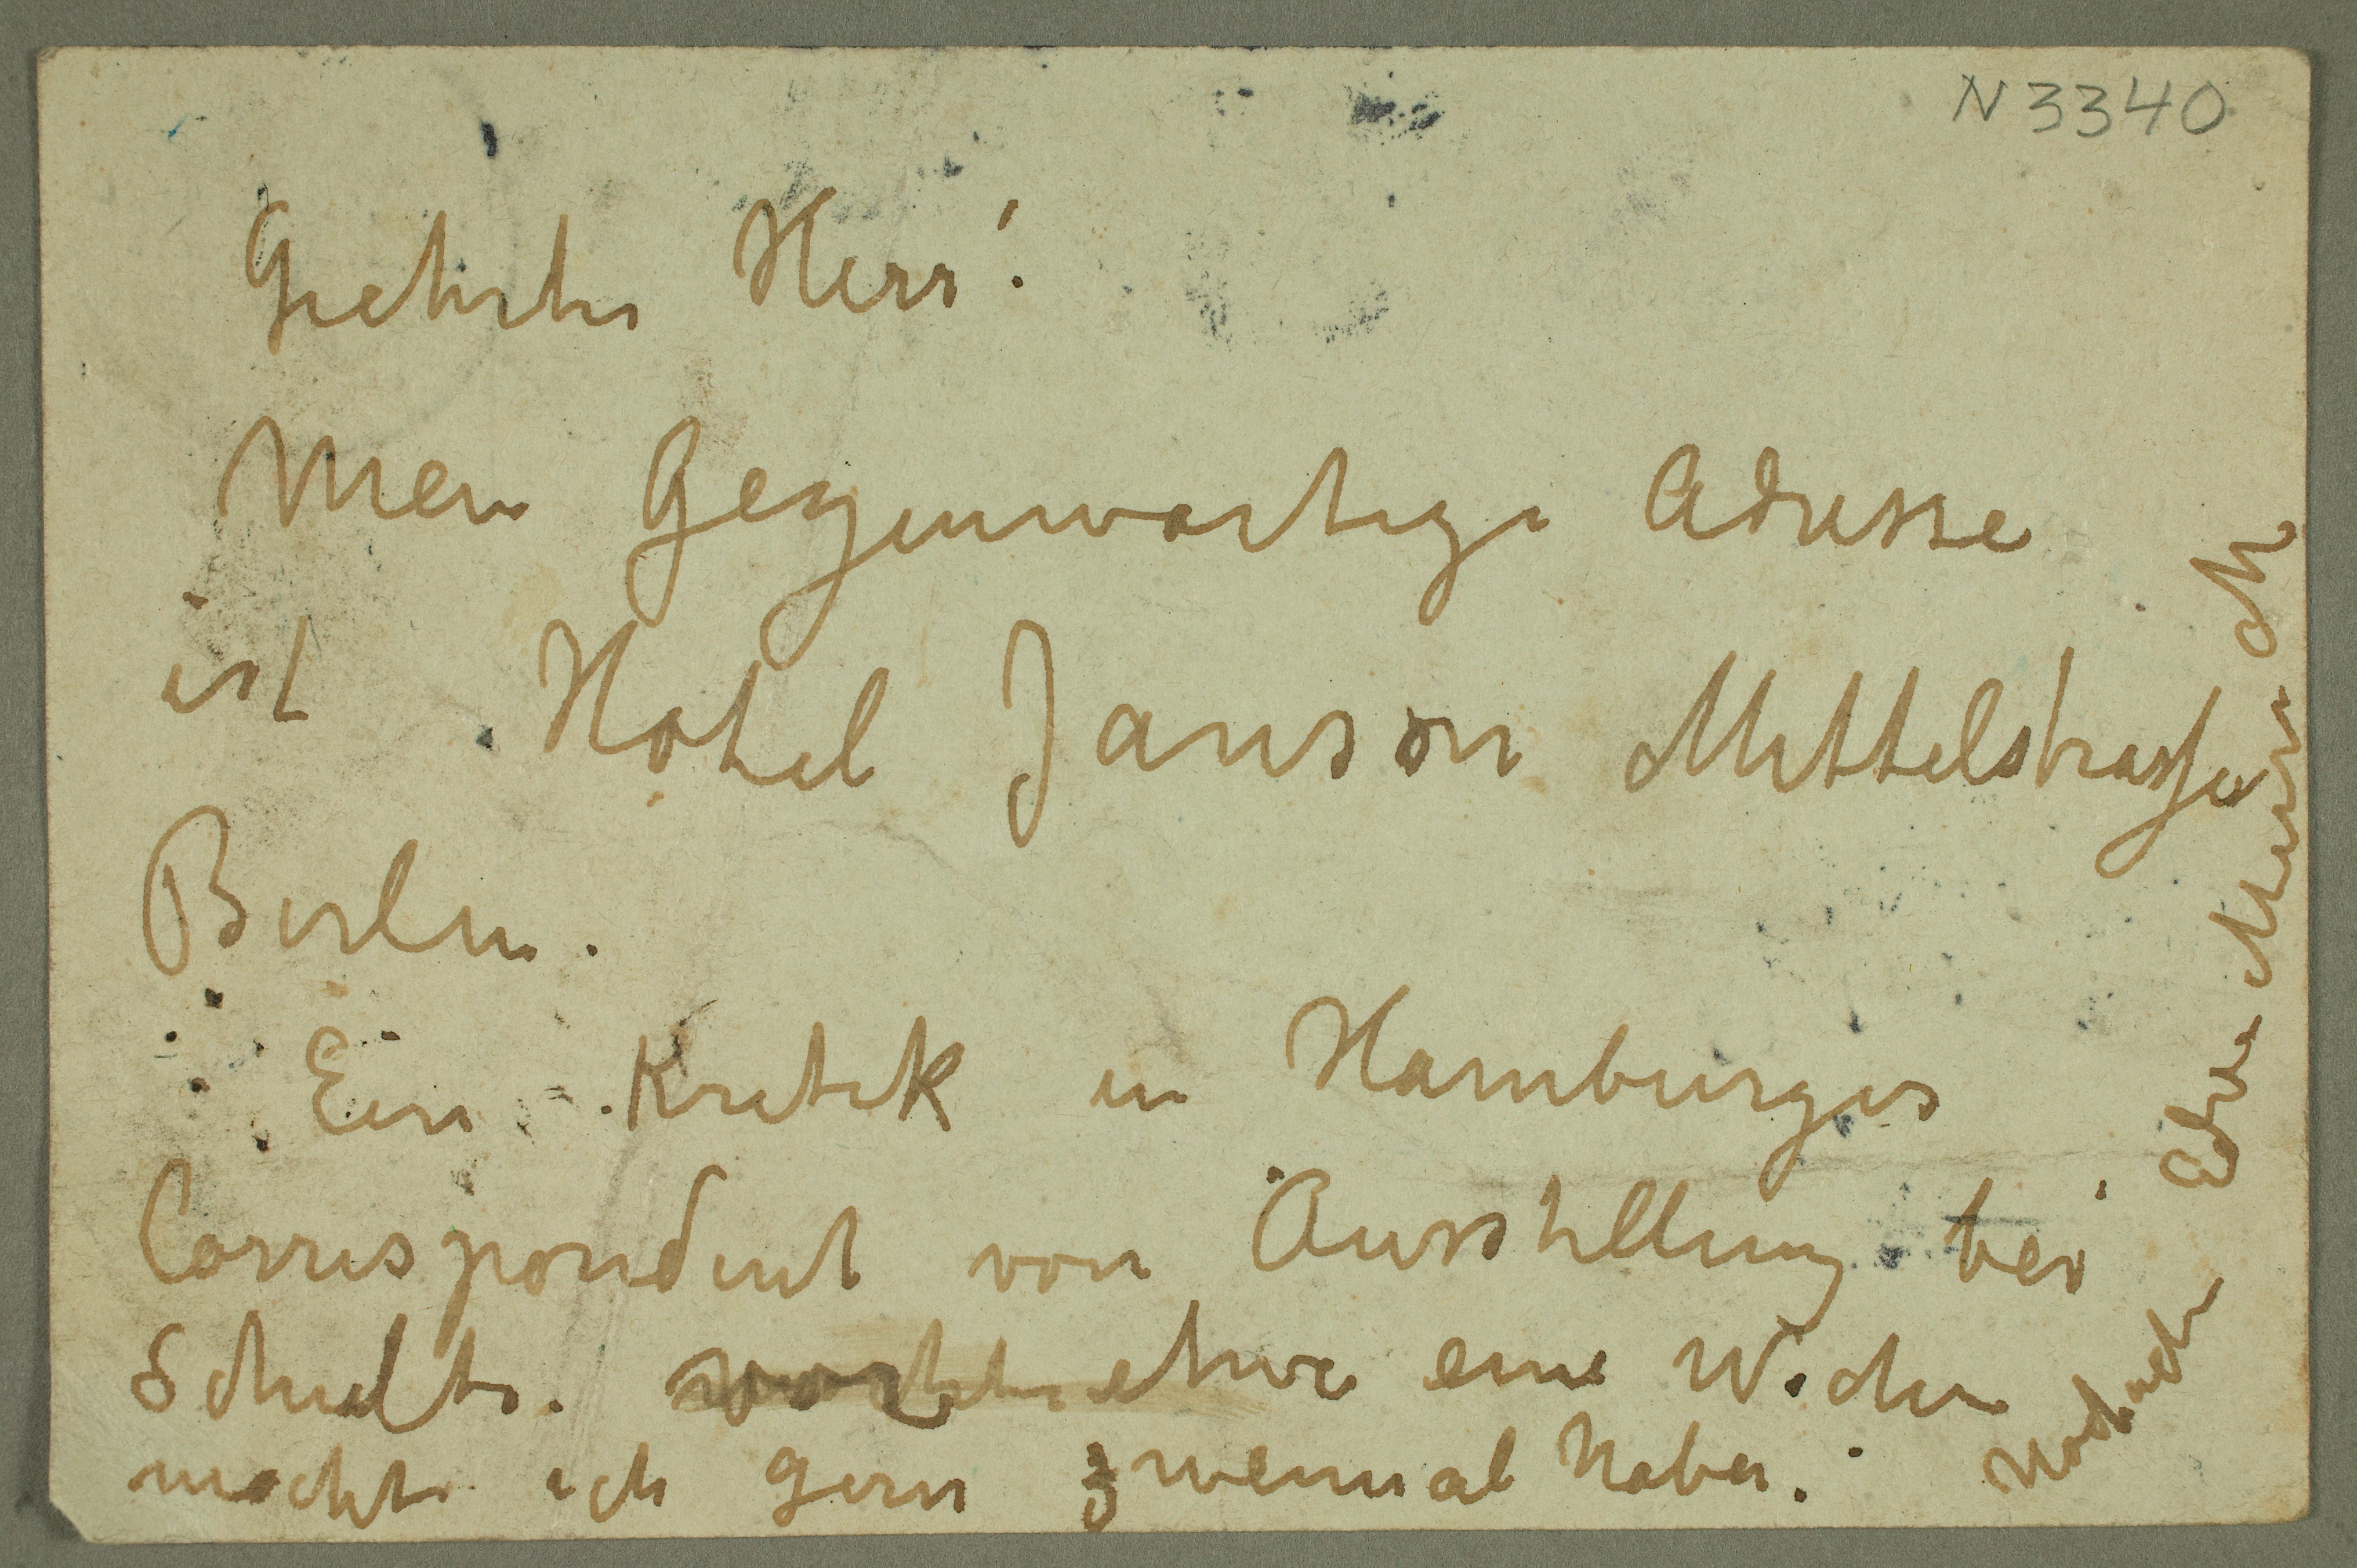 N 3340
Geehrter Herr!
Mein Gegenwartige Adresse
ist Hotel Janson Mittelstrasse
Berlin.
Ein Kritik in Hamburger
Correspondent von Ausstellung bei
Schulte. etwa eine Woche
mocht ich gern zweimal haben.
Hochacht Edv. Munch